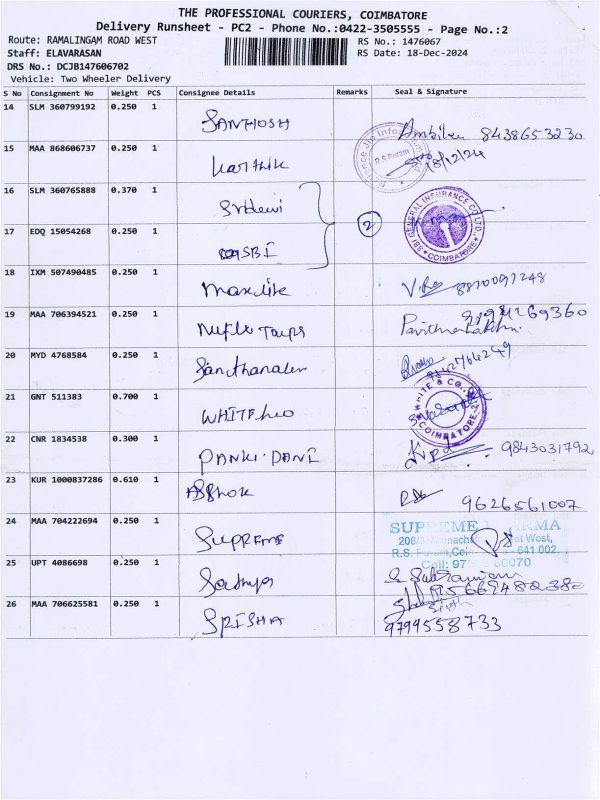 THE PROFESSIONAL COURIERS, COIMBATORE
Delivery Runsheet - PC2 - Phone No.:0422-3505555 - Page No.:2
Route: RAMALINGAM ROAD WEST RS No.: 1476067
Staff: ELAVARASAN RS Date: 18-Dec-2024
DRS No.: DCJB147606702
Vehicle: Two Wheeler Delivery
S No Consignment No Weight PCS Consignee Details Remarks Seal & Signature
14 SLM 360799192 0.250 1 SANTHOSH 8438653230
15 MAA 868606737 0.250 1 Karthik R.S Puram 18/12/24
16 SLM 360765888 0.370 1 Sridevi
17 EDQ 15054268 0.250 1 SBI 2 SBI GENERAL INSURANCE CO LTD. COIMBATORE
18 IXM 507490485 0.250 1
19 MAA 706394521 0.250 1
20 MYD 4768584 0.250 1
21 GNT 511383 0.700 1 WHITE WHITE & CO. COIMBATORE
22 CNR 1834538 0.300 1 9843031792
23 KUR 1000837286 0.610 1 ASHOK 9626561007
24 MAA 704222694 0.250 1 SUPREME SUPREME
R.S.
641 002.
25 UPT 4086698 0.250 1 Sathya
26 MAA 706625581 0.250 1 SRISHA 9799558733